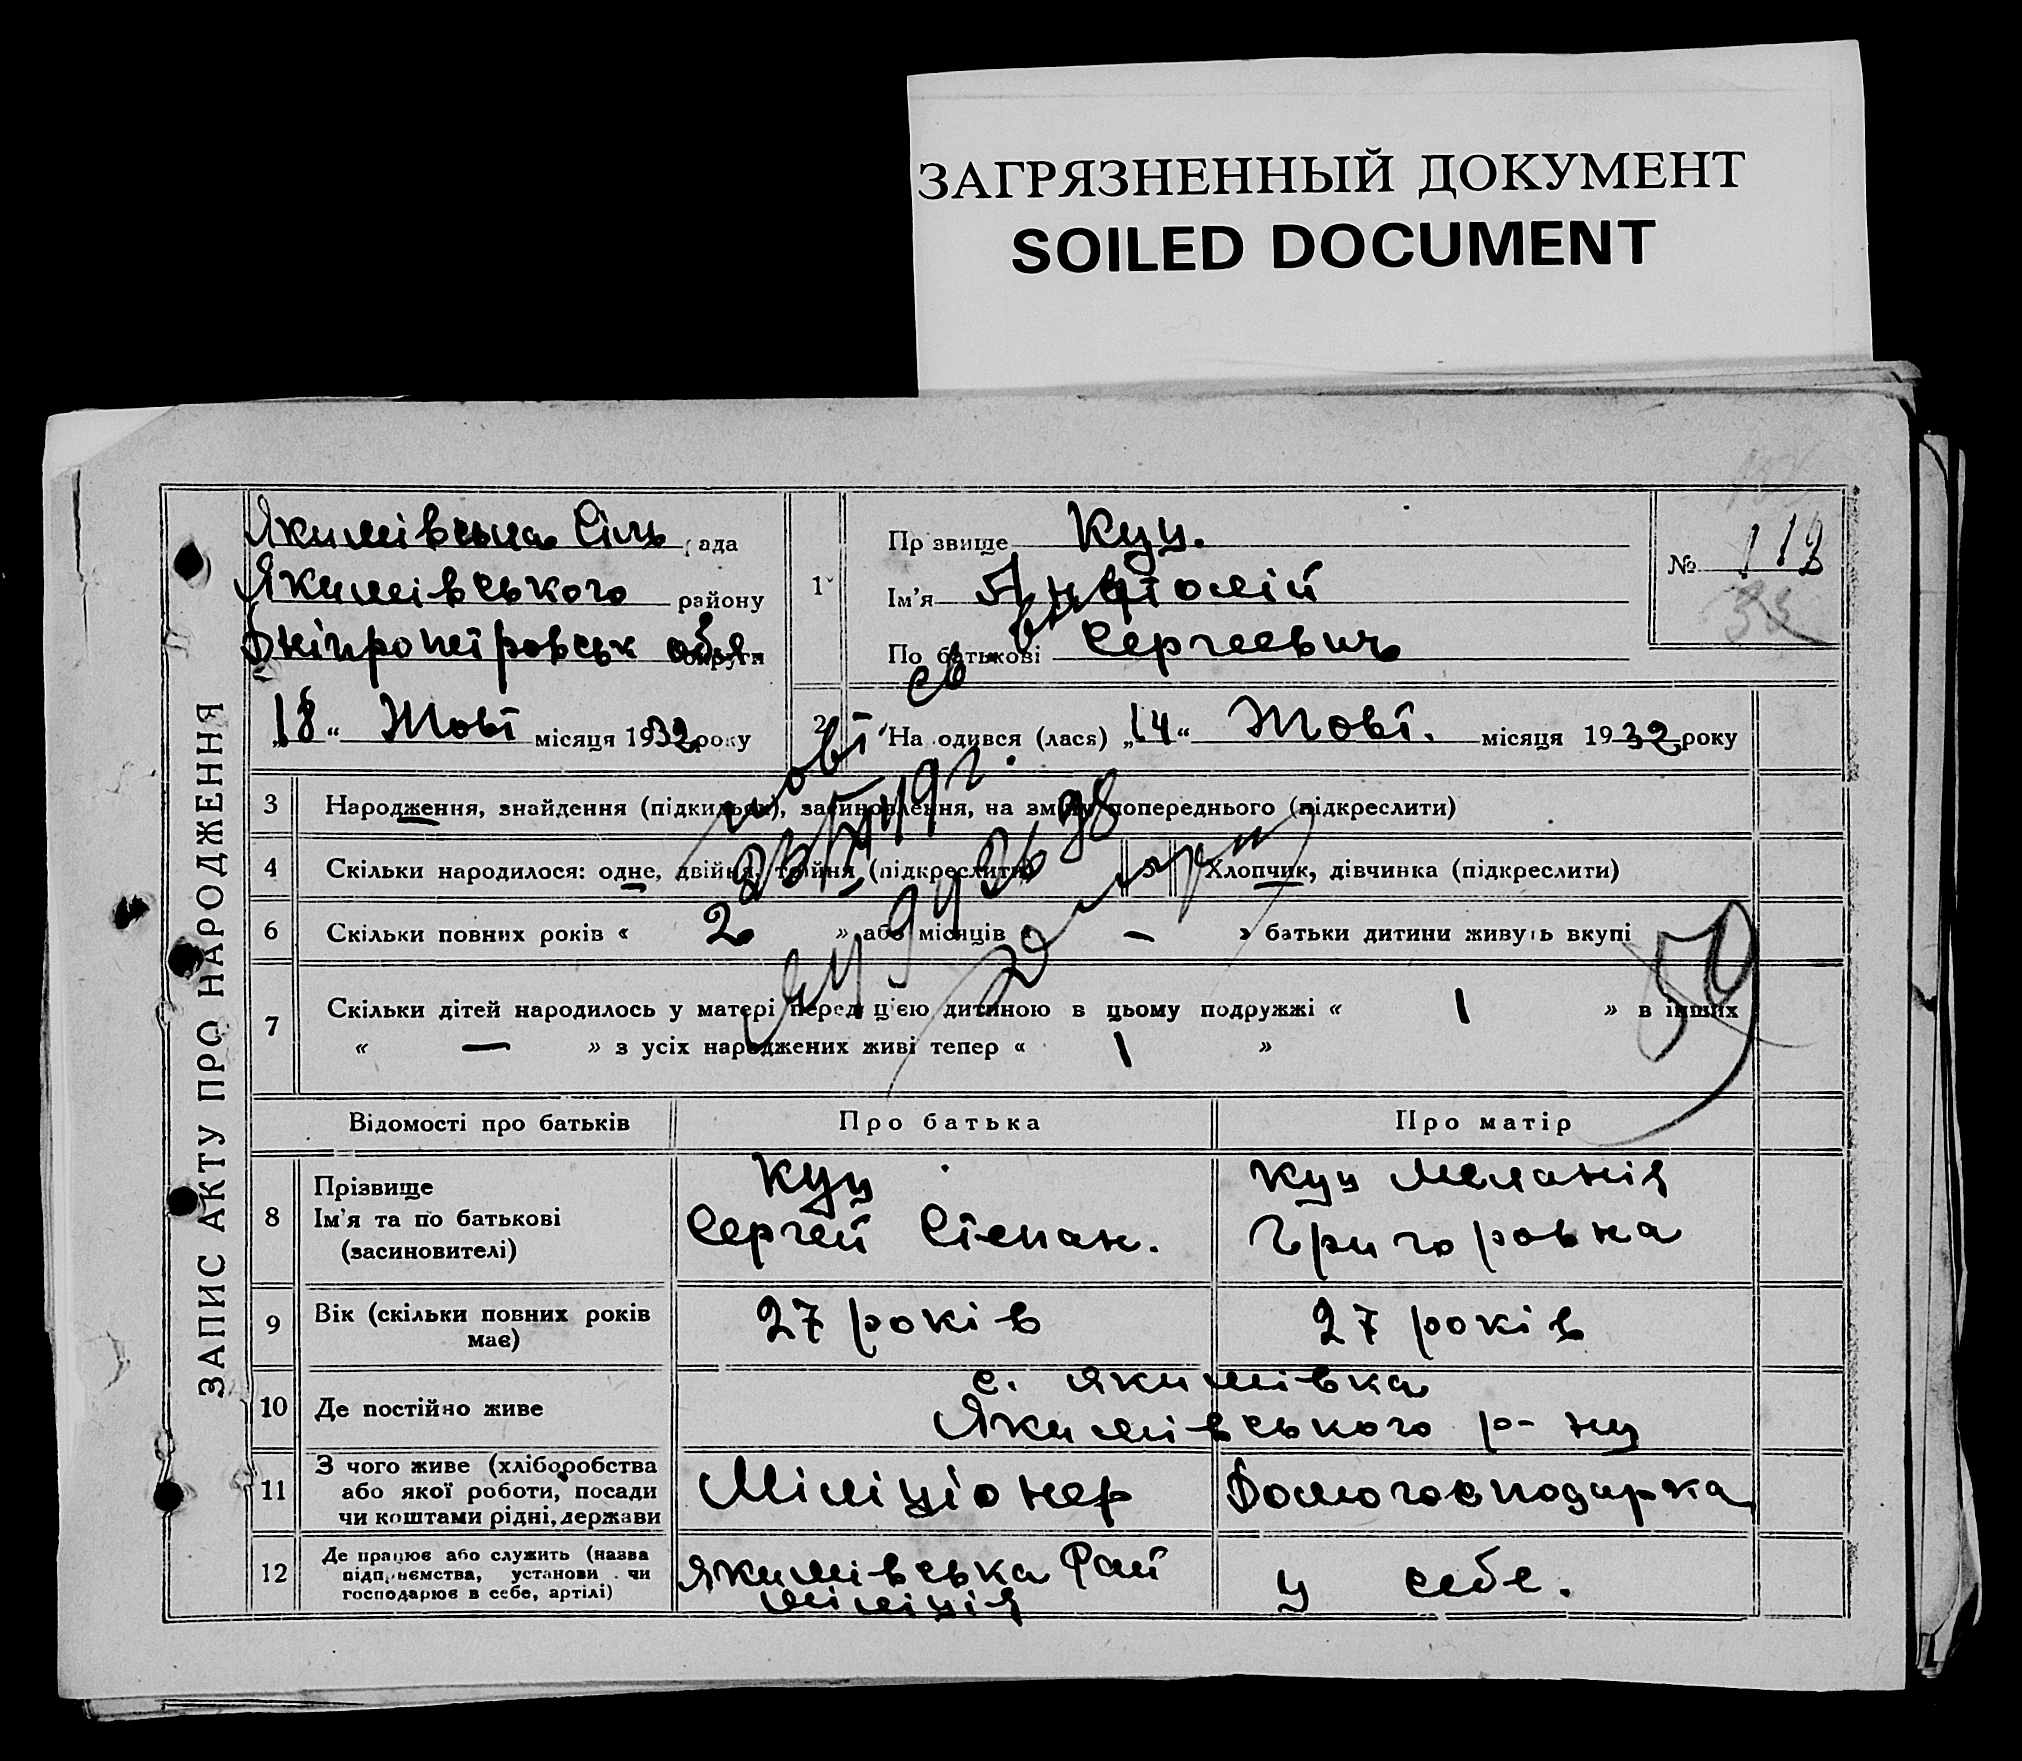 ЗАГРЯЗНЕННЫЙ ДОКУМЕНТ
SOILED DOCUMENT
ЗАПИС АКТУ ПРО НАРОДЖЕННЯ
Якимівська Сіль рада
Якимівського району
Дніпропетровськ обл. округи
„18“ Жовт місяця 1932 року
1
Прізвище Куц.
Ім'я Анатолій
По батькові Сергеевич
№ 112
33
2 Народився (лася) „14“ Жовт. місяця 1932 року
3 Народження, знайдення (підкидьок), засиновлення, на зміну попереднього (підкреслити)
4 Скільки народилося: одне, двійня, трійня (підкреслити) 5 Хлопчик, дівчинка (підкреслити)
6 Скільки повних років « 2 » або місяців « — » батьки дитини живуть вкупі
59
7 Скільки дітей народилось у матері перед цією дитиною в цьому подружжі « 1 » в інших
« — » з усіх народжених живі тепер « 1 »
Відомості про батьків Про батька Про матір
8 Прізвище
Ім'я та по батькові
(засиновителі)
Куц
Сергей Степан.
Куц Меланія
Григоровна
9 Вік (скільки повних років має)
27 років 27 років
10 Де постійно живе
с. Якимівка
Якимівського р-ну
11 З чого живе (хліборобства
або якої роботи, посади
чи коштами рідні, держави
Міліціонер Домогосподарка
12 Де працює або служить (назва
підприємства, установи чи
господарює в себе, артілі)
Якимівська Рай
міліція
у себе.